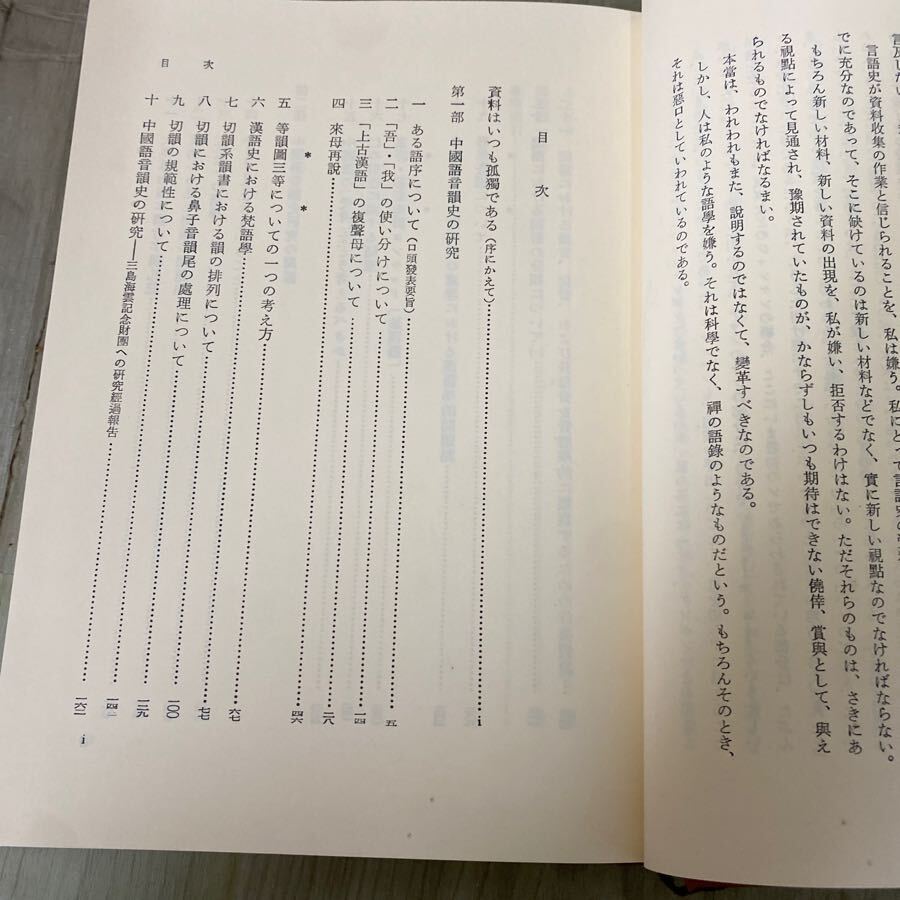 言語史が資料収集の作業と信じられることを、私は嫌う。私にとって言語史の
でに充分なのであって、そこに缺けているのは新しい材料などでなく、實に新しい視點なのでなければならない。
もちろん新しい材料、新しい資料の出現を、私が嫌い、拒否するわけはない。ただそれらのものは、さきにあ
る視點によって見通され、豫期されていたものが、かならずしもいつも期待はできない僥倖、賞與として、與え
られるものでなければなるまい。
本當は、われわれもまた、説明するのではなくて、變革すべきなのである。
しかし、人は私のような語學を嫌う。それは科學でなく、禪の語錄のようなものだという。もちろんそのとき、
それは惡口としていわれているのである。
目 次
資料はいつも孤獨である（序にかえて）……i
第一部 中國語音韻史の硏究
一 ある語序について（口頭發表要旨）……五
二 「吾」・「我」の使い分けについて……一四
三 「上古漢語」の複聲母について……二八
四 來母再説……四六
＊ ＊
五 等韻圖三等についての一つの考え方……六七
六 漢語史における梵語學……七七
七 切韻系韻書における韻の排列について……一〇〇
八 切韻における鼻子音韻尾の處理について……一二九
九 切韻の規範性について……一四二
十 中國語音韻史の硏究――三島海雲記念財團への硏究經過報告……一六二
目 次
i